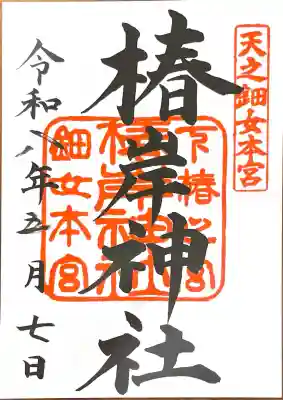 天之鈿女本宮
椿岸神社
令和八年五月七日
椿岸神社
鈿女本宮